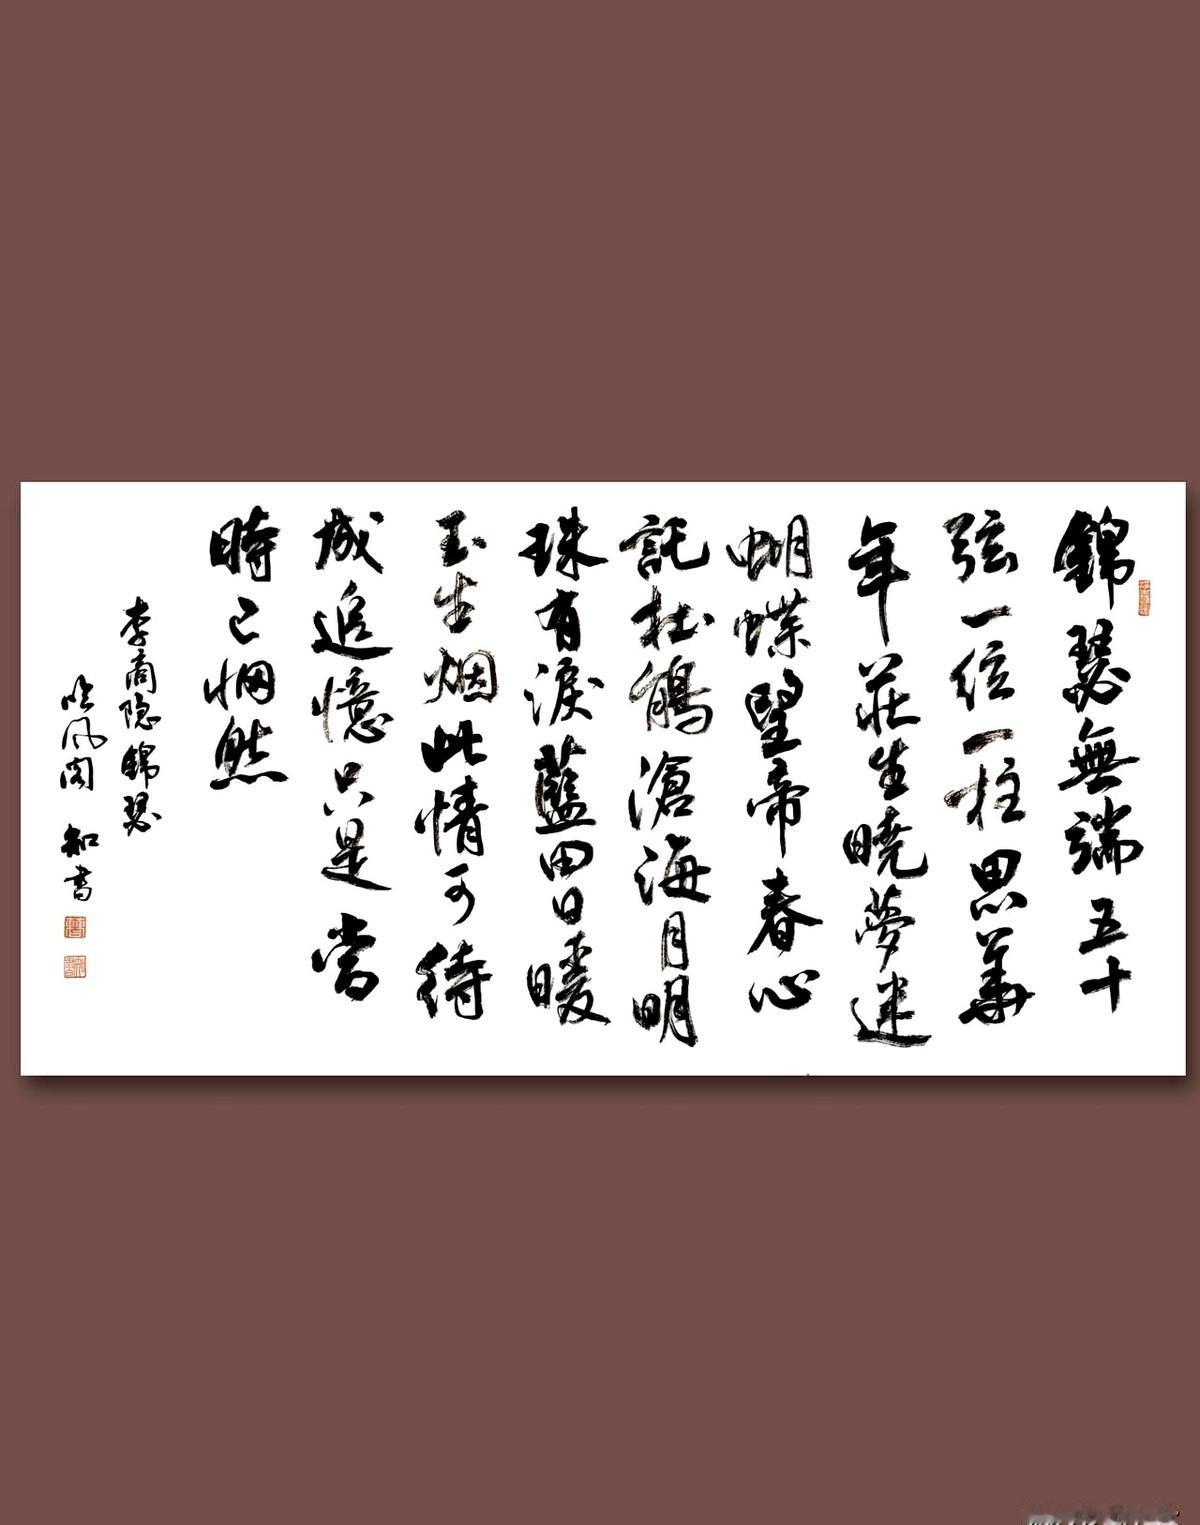 錦瑟無端五十
弦一絃一柱思華
年莊生曉夢迷
蝴蝶望帝春心
託杜鵑滄海月明
珠有淚藍田日暖
玉生烟此情可待
成追憶只是當
時已惘然
李商隐錦瑟
吟風閣 知書